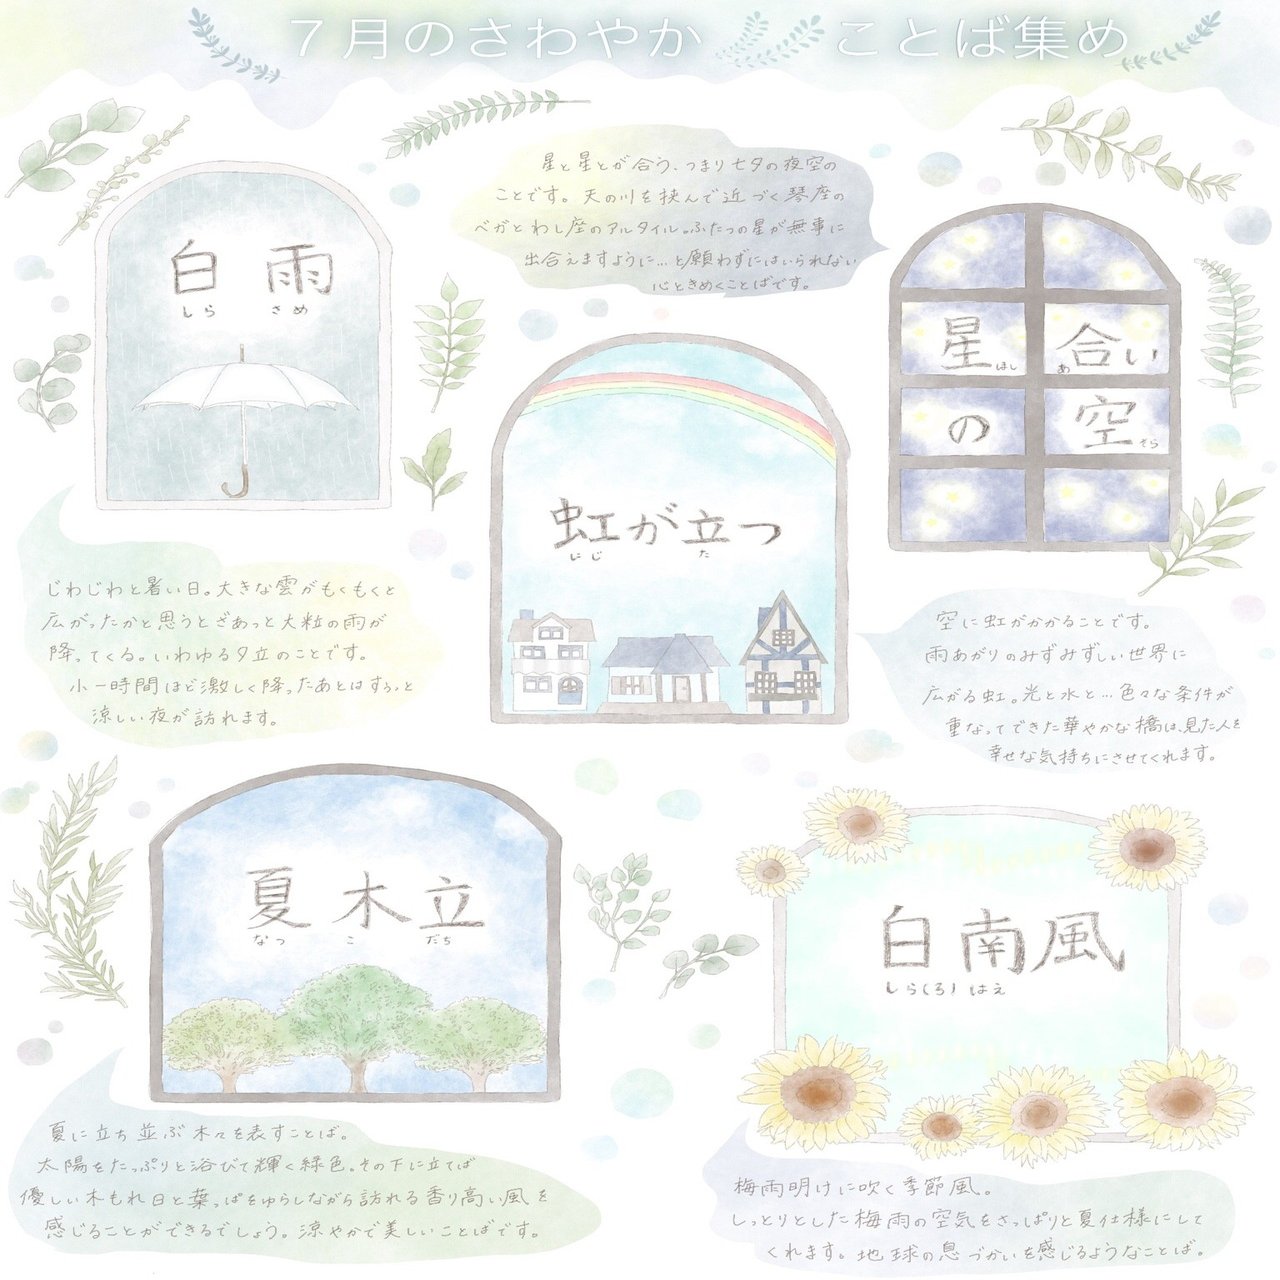 ７月のさわやか ことば集め
白雨
しらさめ
じわじわと暑い日。大きな雲がもくもくと
広がったかと思うとざあっと大粒の雨が
降ってくる。いわゆる夕立のことです。
小一時間ほど激しく降ったあとはすぅっと
涼しい夜が訪れます。
星と星とが合う、つまり七夕の夜空の
ことです。天の川を挟んで近づく琴座の
ベガとわし座のアルタイル。ふたつの星が無事に
出合えますように…と願わずにはいられない
心ときめくことばです。
星合い
ほしあ
の空
そら
虹が立つ
にじた
空に虹がかかることです。
雨あがりのみずみずしい世界に
広がる虹。光と水と…色々な条件が
重なってできた華やかな橋は、見た人を
幸せな気持ちにさせてくれます。
夏木立
なつこだち
夏に立ち並ぶ木々を表すことば。
太陽をたっぷりと浴びて輝く緑色。その下に立てば
優しい木もれ日と葉っぱをゆらしながら訪れる香り高い風を
感じることができるでしょう。涼やかで美しいことばです。
白南風
しら(ろ)はえ
梅雨明けに吹く季節風。
しっとりとした梅雨の空気をさっぱりと夏仕様にして
くれます。地球の息づかいを感じるようなことば。